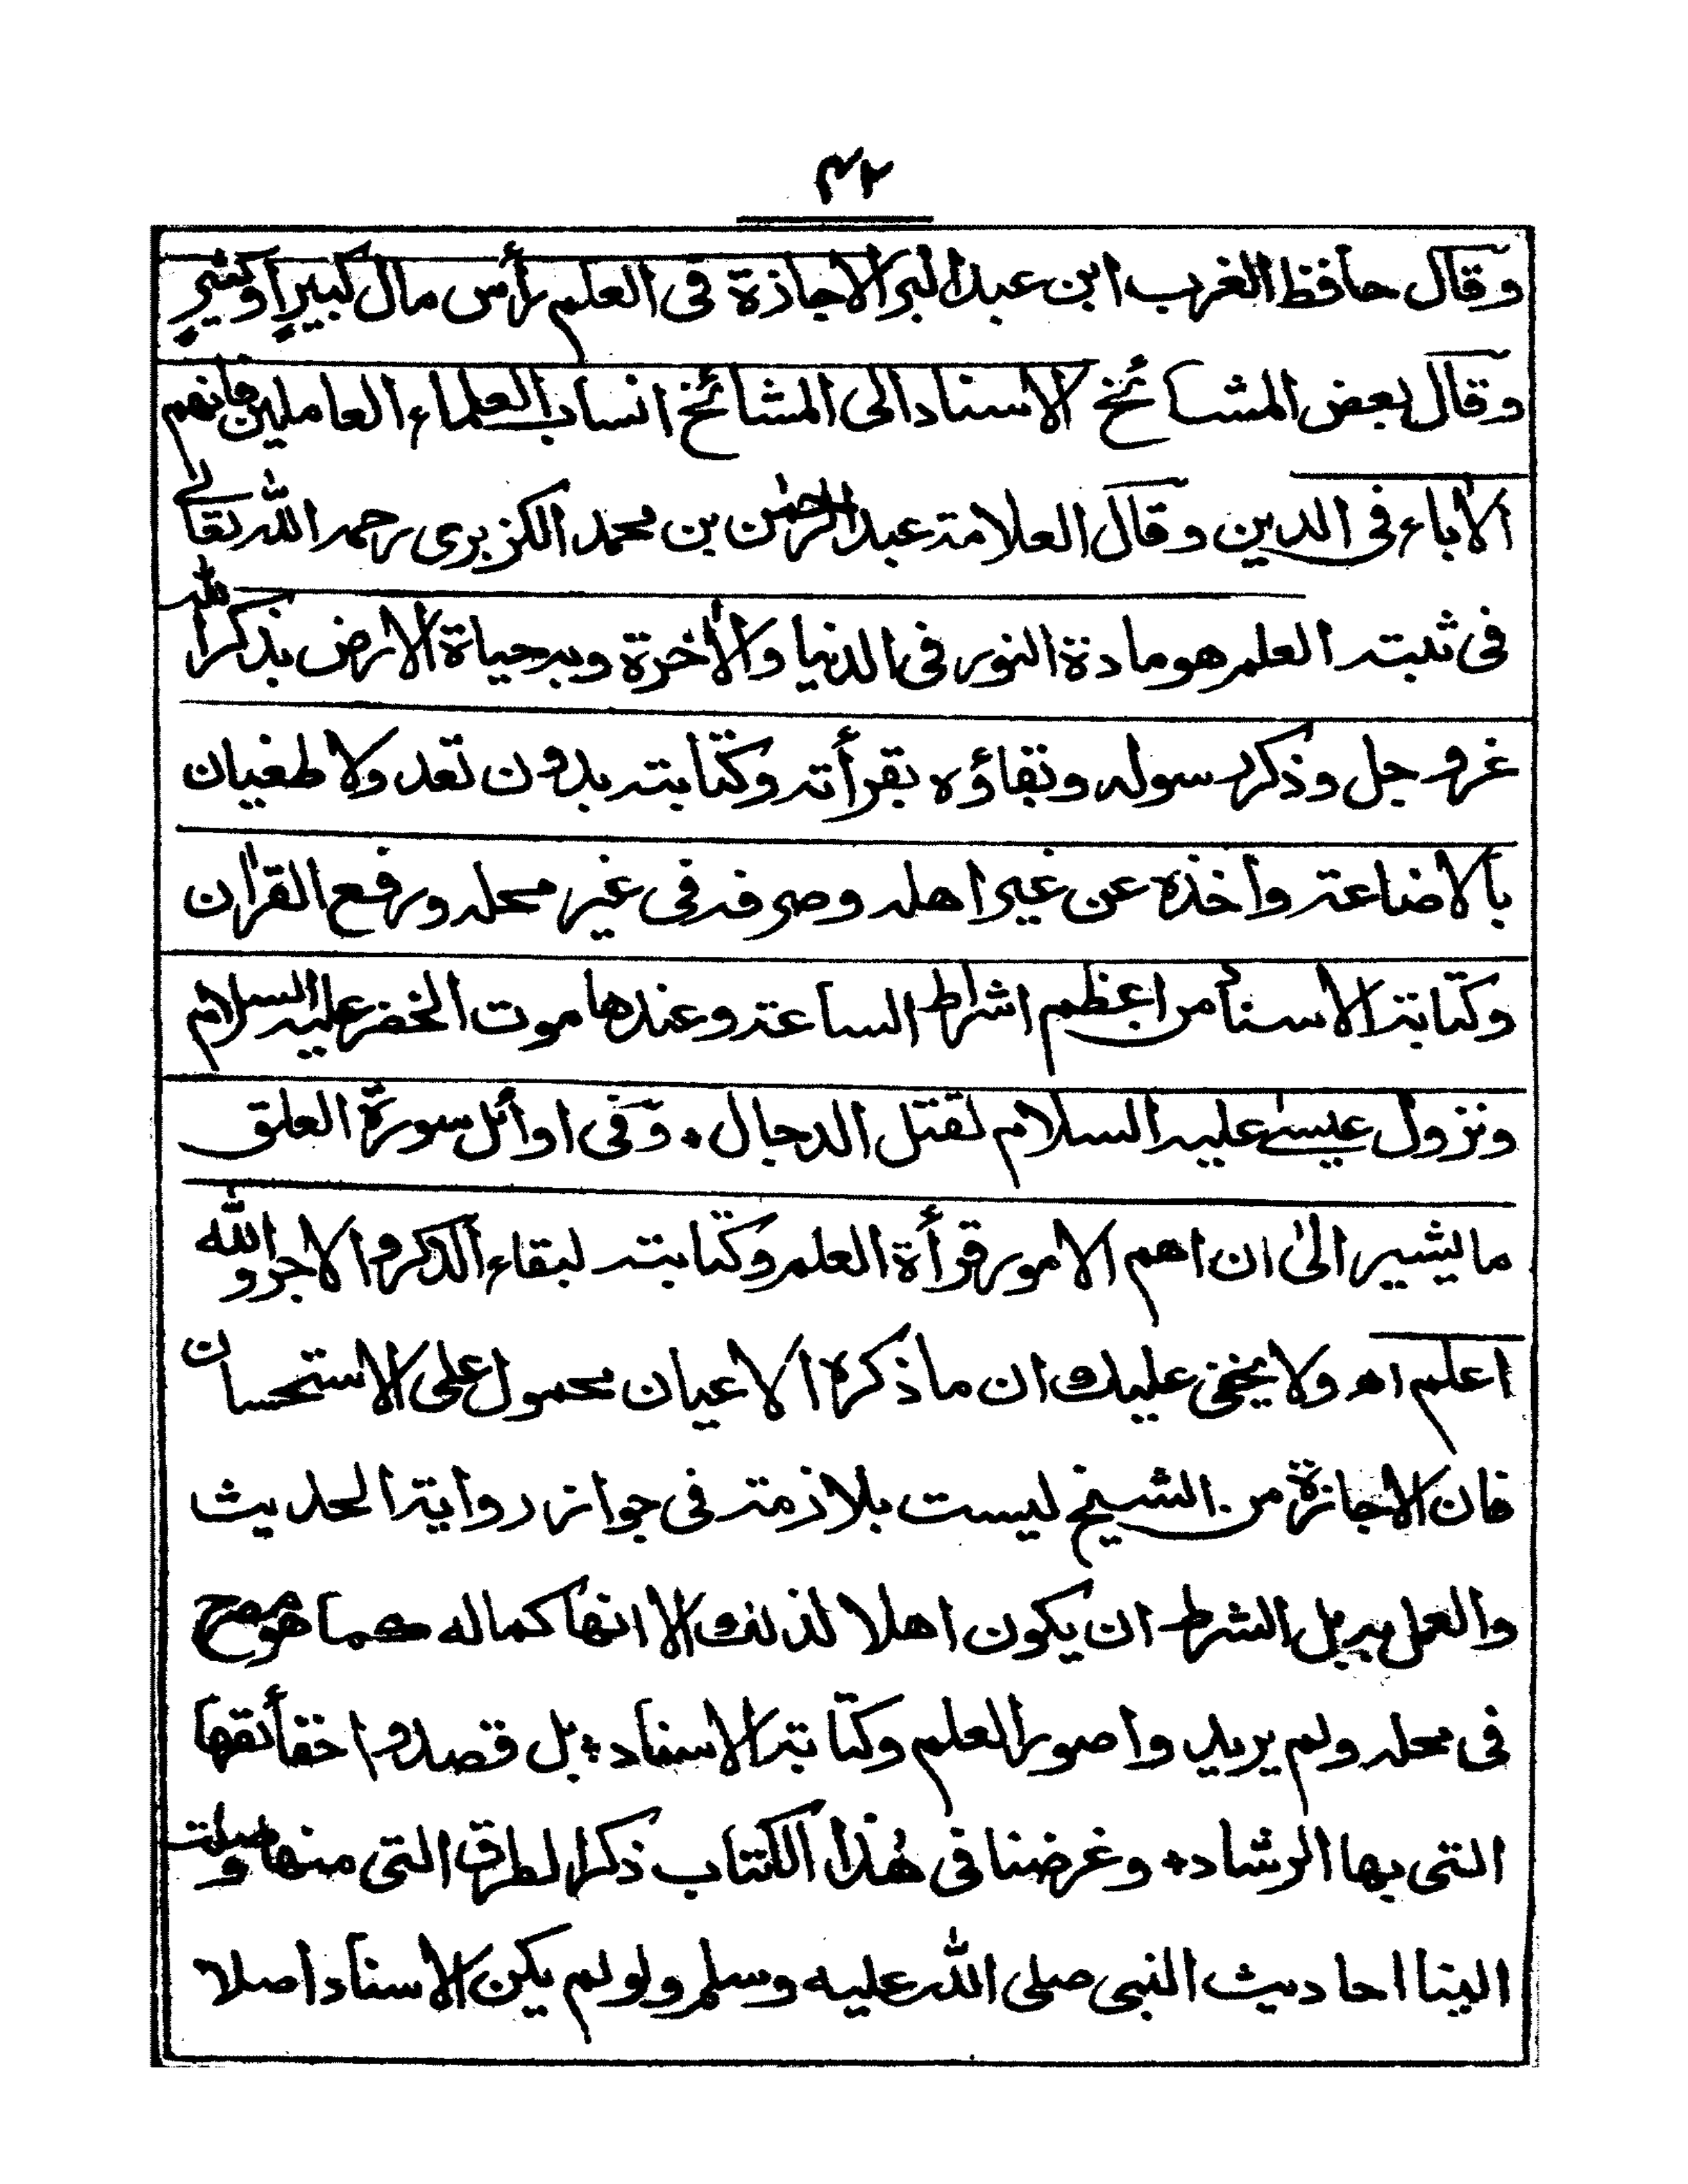 ٤٢
وقال حافظ الغرب ابن عبدالبر الاجاذة فى العلم رأس مال كبيرٍ اوكثيرٍ
وقال بعض المشائخ الاسناد الى المشائخ انساب العلماء العاملين فانهم
الاٰباء فى الدين وقال العلامة عبدالرحمٰن بن محمد الكزبرى رحمه الله تعالى
فى ثبته العلم هو مادة النور فى الدنيا والاٰخرة وبه حياة الارض بذكر الله
غروجل وذكر رسوله وبقاؤه بقرأته وكتابته بدون تعد ولا طغيان
بالاضاعة واخذه عن غير اهله وصرفه فى غير محله ورفع القراٰن
وكتابة الاسناد من اعظم اشراط الساعة وعندها موت الخضر عليه السلام
ونزول عيسىٰ عليه السلام لقتل الدجال . وفى اوائل سورة العلق
ما يشير الىٰ ان اهم الامور قرأة العلم وكتابته لبقاء الذكر والاجر والله
اعلم اھ ولا يخفى عليك ان ما ذكره الاعيان محمول على الاستحسان
فان الاجازة من الشيخ ليست بلازمة فى جواز رواية الحديث
والعمل به بل الشرط ان يكون اهلا لذلك الا انها كماله كما هو مصرح
فى محله ولم يريدوا صور العلم وكتابة الاسناد ؛ بل قصدوا حقائقها
التى بها الرشاد ، وغرضنا فى هٰذا الكتاب ذكر الطرق التى منها وصلت
الينا احاديث النبى صلى الله عليه وسلم ولو لم يكن الاسناد اصلا